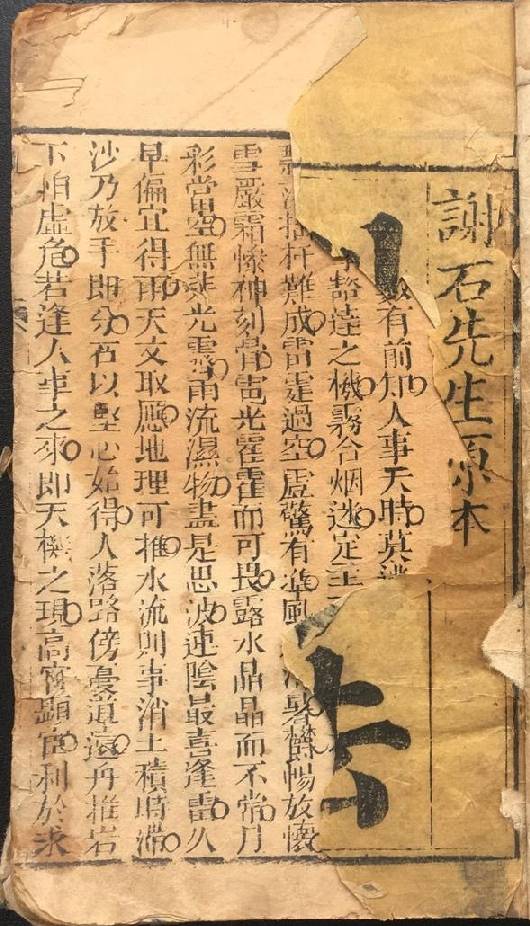 謝石先生原本
數有前知人事天時莫逃
豁達之機霧合烟迷定主
難成雷霆過空虛驚有準風
暑鬱暢放懷
雪嚴霜慘神刻骨電光霍霍而可畏露水晶晶而不常月
彩當空無弊光雲雨流濕物盡是思波連陰最喜逢晝久
旱偏宜得雨天文取應地理可推水流則事消土積時滯
沙乃放手即分石以堅心始得人落路傍憂道遠舟推岩
下怕虛危若逢人事之來即天機之現高官顯宦利於求